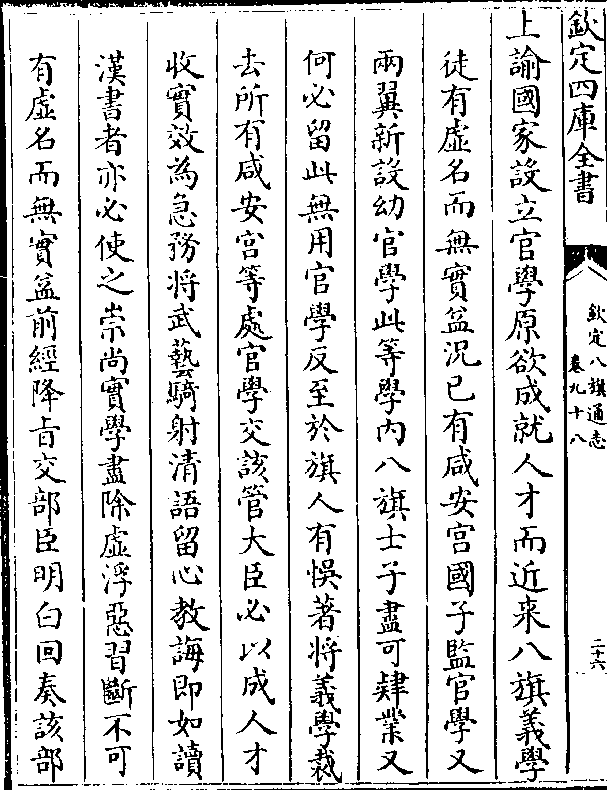 欽定四庫全書
欽定八旗通志
卷九十八
二十六
上諭國家設立官學原欲成就人才而近來八旗義學
徒有虛名而無實益況已有咸安宮國子監官學又
兩翼新設幼官學此等學內八旗士子盡可肄業又
何必留此無用官學反至於旗人有悞著將義學裁
去所有咸安宮等處官學交該管大臣必以成人才
收實效為急務將武藝騎射清語留心教誨即如讀
漢書者亦必使之崇尚實學盡除虛浮惡習斷不可
有虛名而無實益前經降旨交部臣明白回奏該部